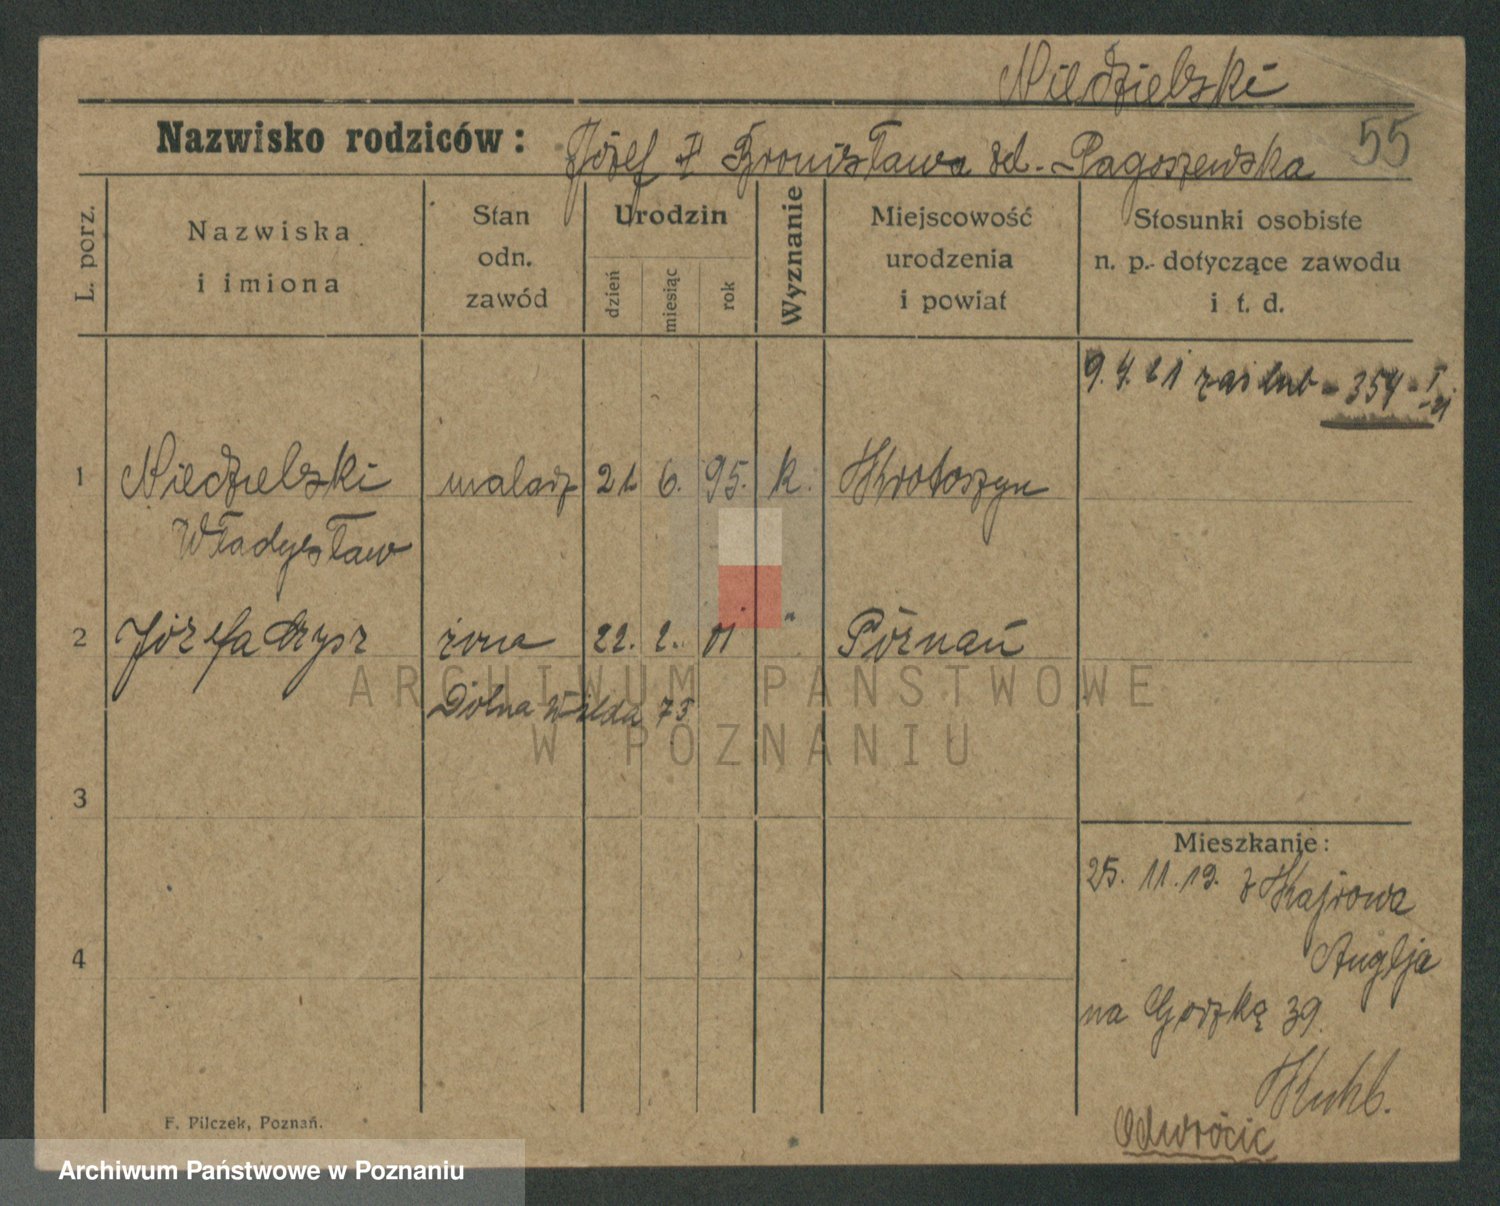 Niedzielski
Nazwisko rodziców: Józef i Bronisława zd. Pagoszewska 55
L. porz.
Nazwiska
i imiona
Stan
odn.
zawód
Urodzin
dzień
miesiąc
rok
Wyznanie
Miejscowość
urodzenia
i powiat
Stosunki osobiste
n. p. dotyczące zawodu
i t. d.
9. 4. 21 zaślub - 354 -
1 Niedzielski malarz 21 6. 95. k. Krotoszyn
Władysław
2 Józefa żona 22. 2. 01 " Poznań
Dolna Wilda 75
3
Mieszkanie:
25. 11. 19. z Kajrowa
Anglja
4
na Gorzką 39.
Odwrócić
F. Pilczek, Poznań.
ARCHIWUM PAŃSTWOWE
W POZNANIU
Archiwum Państwowe w Poznaniu